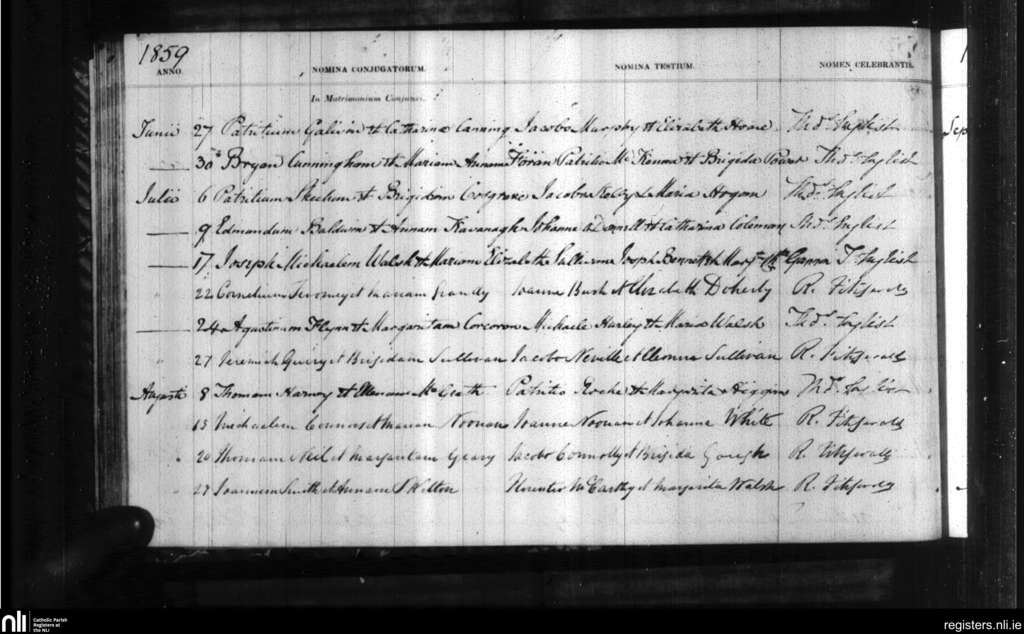 1859
ANNO. NOMINA CONJUGATORUM. NOMINA TESTIUM. NOMEN CELEBRANTIS.
In Matrimonium Conjunxi.
Junii 27 Patritium et Catharina Canning Jacobo Murphy et Elizabeth Thos. English
30 Bryan Cunningham et Mariam Patritio Mc Kenna et Brigida Power Thos. English
Julii 6 Patritium et Brigidam Cosgrave Jacobo Kelly et Maria Hogan Thos. English
9 Edmundum Baldwin et Annam Kavanagh Johanne et Catharina Coleman Thos. English
17 Joseph Michaelem Walsh et Mariam Elizabeth Joseph Bennett T. English
22 Cornelium et Mariam Grandy Joanne Bush et Elizabeth Doherty R. Fitzgerald
24 Agustinum Flynn et Margaritam Corcoran Michaele Hurley et Maria Walsh Thos. English
27 Jeremiah et Brigidam Sullivan Jacobo Neville et Sullivan R. Fitzgerald
Augusti 8 Thomam Harvey et Mc Grath Patritio Roche et Margarita Higgins Thos. English
15 Michaelem Connors et Mariam Noonan Joanne Noonan et Johanna White R. Fitzgerald
20 Thomam Neil et Margaritam Geary Jacobo Connolly et Brigida Gough R. Fitzgerald
27 Joannem Smith et Annam Florentio McCarthy et Margarita Walsh R. Fitzgerald
Sep
nli Catholic Parish
Registers at
the NLI
registers.nli.ie